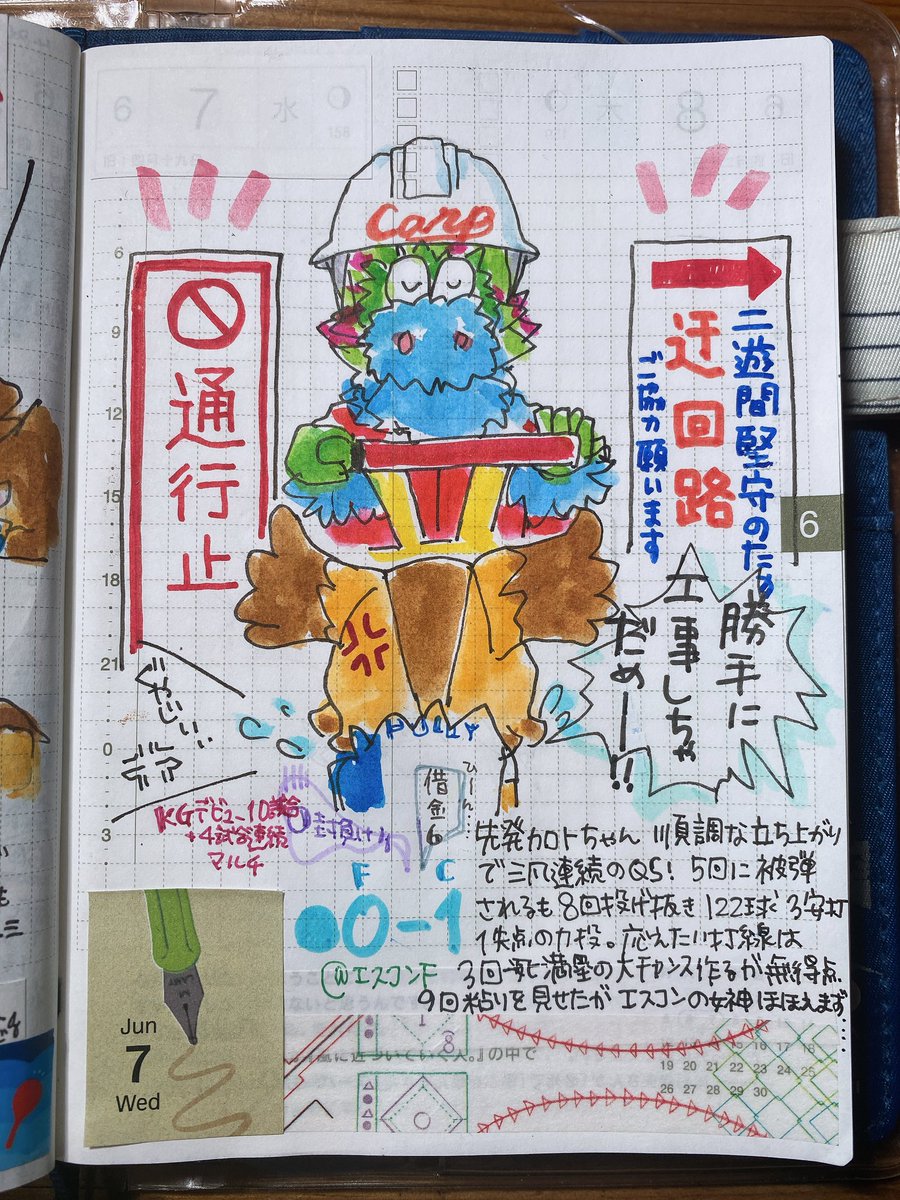 6 7 水
158
8
Carp
通行止
迂回路
二遊間堅守のため
ご協力願います
勝手に
工事しちゃ
だめー!!
6
6
9
12
15
18
21
0
3
くやしい
KGデビュー10試合
+4試合連続
マルチ
封負け
ひーん…
借金6
F C
0-1
@エスコンF
先発加トちゃん 順調な立ち上がり
で三凡連続のQS! 5回に被弾
されるも8回投げ抜き122球3安打
1失点の力投。応えたい打線は
3回一死満塁の大チャンス作るが無得点
9回粘りを見せたがエスコンの女神ほほえまず…
Jun
7
Wed
に近づいていく人。』の中で
19 20 21 22 23 24 25
26 27 28 29 30